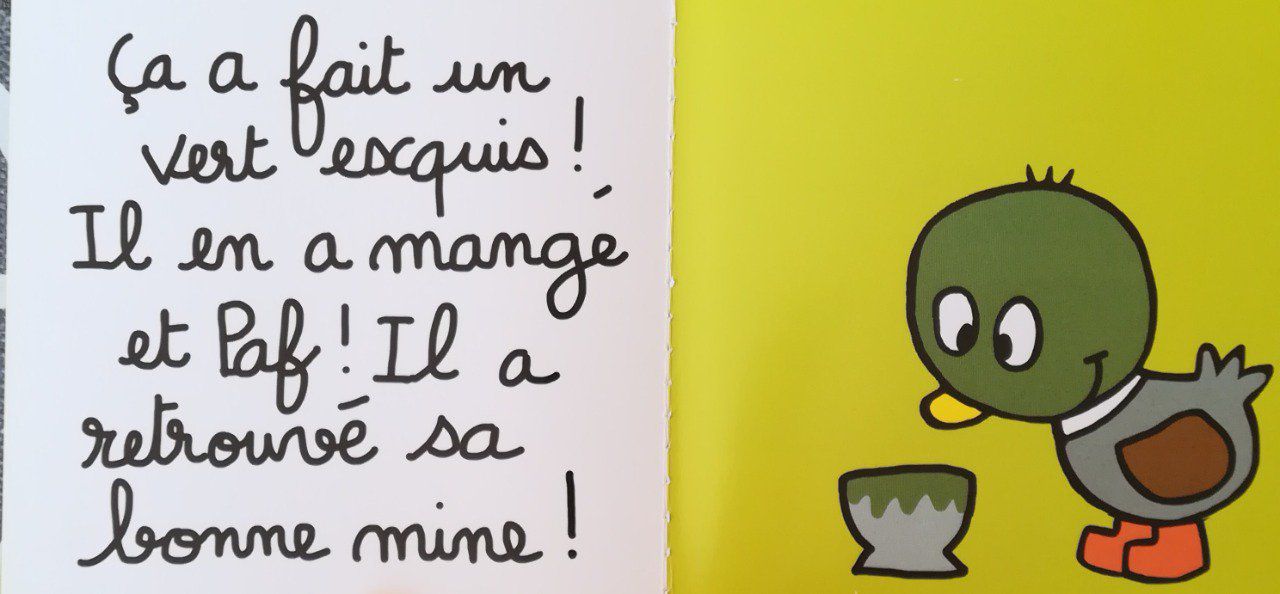 Ça a fait un
vert exquis !
Il en a mangé
et Paf ! Il a
retrouvé sa
bonne mine !